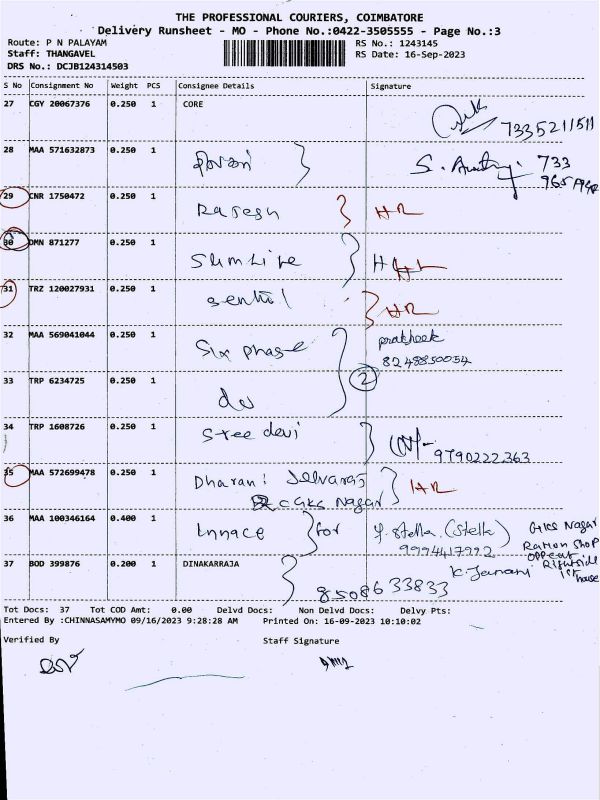 THE PROFESSIONAL COURIERS, COIMBATORE
Delivery Runsheet - MO - Phone No.:0422-3505555 - Page No.:3
Route: P N PALAYAM
Staff: THANGAVEL
DRS No.: DCJB124314503
RS No.: 1243145
RS Date: 16-Sep-2023
S No Consignment No Weight PCS Consignee Details Signature
27 CGY 20067376 0.250 1 CORE
7335211511
28 MAA 571632873 0.250 1
733
29 CNR 1750472 0.250 1 Rajesh HR
30 DMN 871277 0.250 1 Slim Life
31 TRZ 120027931 0.250 1 Senthil HR
32 MAA 569041044 0.250 1 Six phase pratheek
8248850054
2
33 TRP 6234725 0.250 1 do
34 TRP 1608726 0.250 1 Sree devi
9790222363
35 MAA 572699478 0.250 1 Dharani Selvaraj HR
GKS Nagar
36 MAA 100346164 0.400 1 Innace for Y. Stella (Stella)
9994417992
GKS Nagar
Ration Shop
Rightside
1st
house
37 BOD 399876 0.200 1 DINAKARRAJA K. Janani
8508633833
Tot Docs: 37 Tot COD Amt: 0.00 Delvd Docs: Non Delvd Docs: Delvy Pts:
Entered By :CHINNASAMYMO 09/16/2023 9:28:28 AM Printed On: 16-09-2023 10:10:02
Verified By Staff Signature